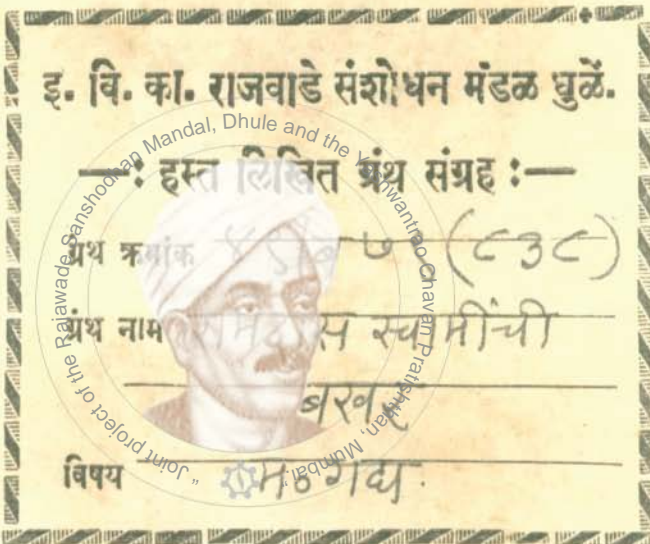 इ. वि. का. राजवाडे संशोधन मंडळ धुळें.
—: हस्त लिखित ग्रंथ संग्रह :—
ग्रंथ क्रमांक ७ (८३८)
ग्रंथ नाम रामदास स्वामींची
बखर
विषय म० गद्य.
"Joint project of the Rajawade Sanshodhan Mandal, Dhule and the Yashwantrao Chavan Pratishthan, Mumbai."